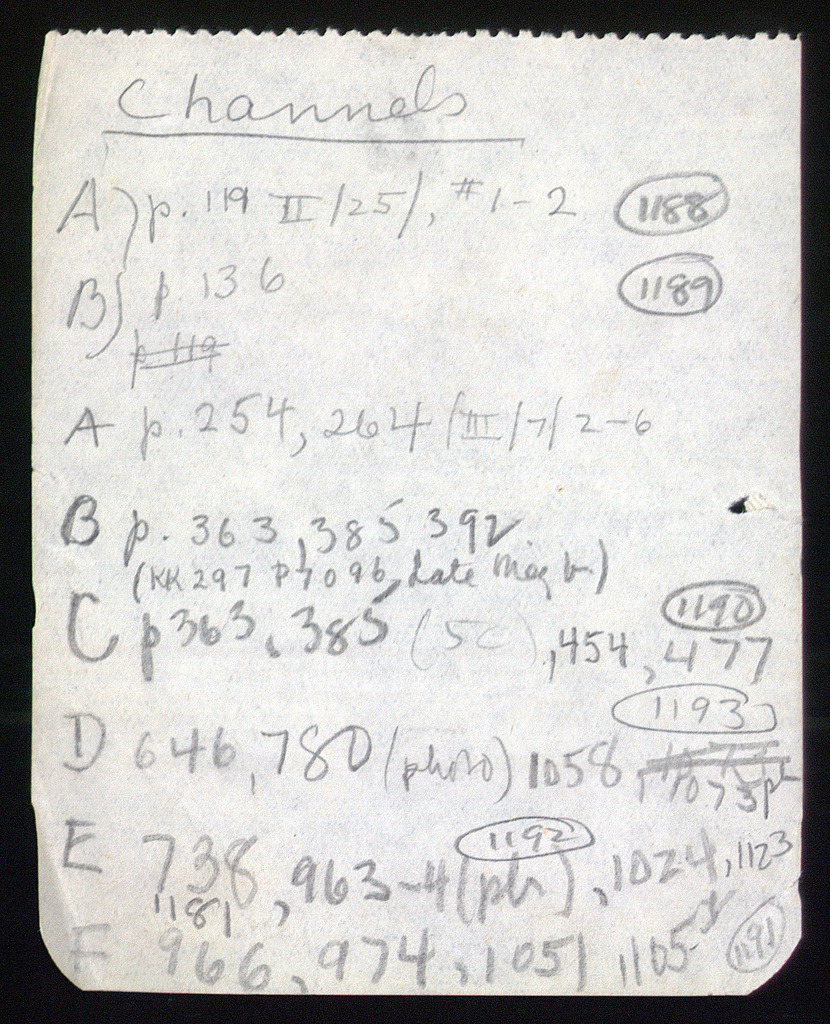 Channels
A) p. 119 II/25/, #1-2 1188
B} p. 136 1189
p 119
A p. 254, 264/III/7/2-6
B p. 363, 385 392
(KK 297 P7096, Late Mag
C p 363, 385 (5c), 454, 477 1190
D 646, 780 (photo) 1058, 1073 ph 1193
E 738, 963-4 (ph), 1024, 1123 1192
1181
F 966, 974, 1051 1105 1191